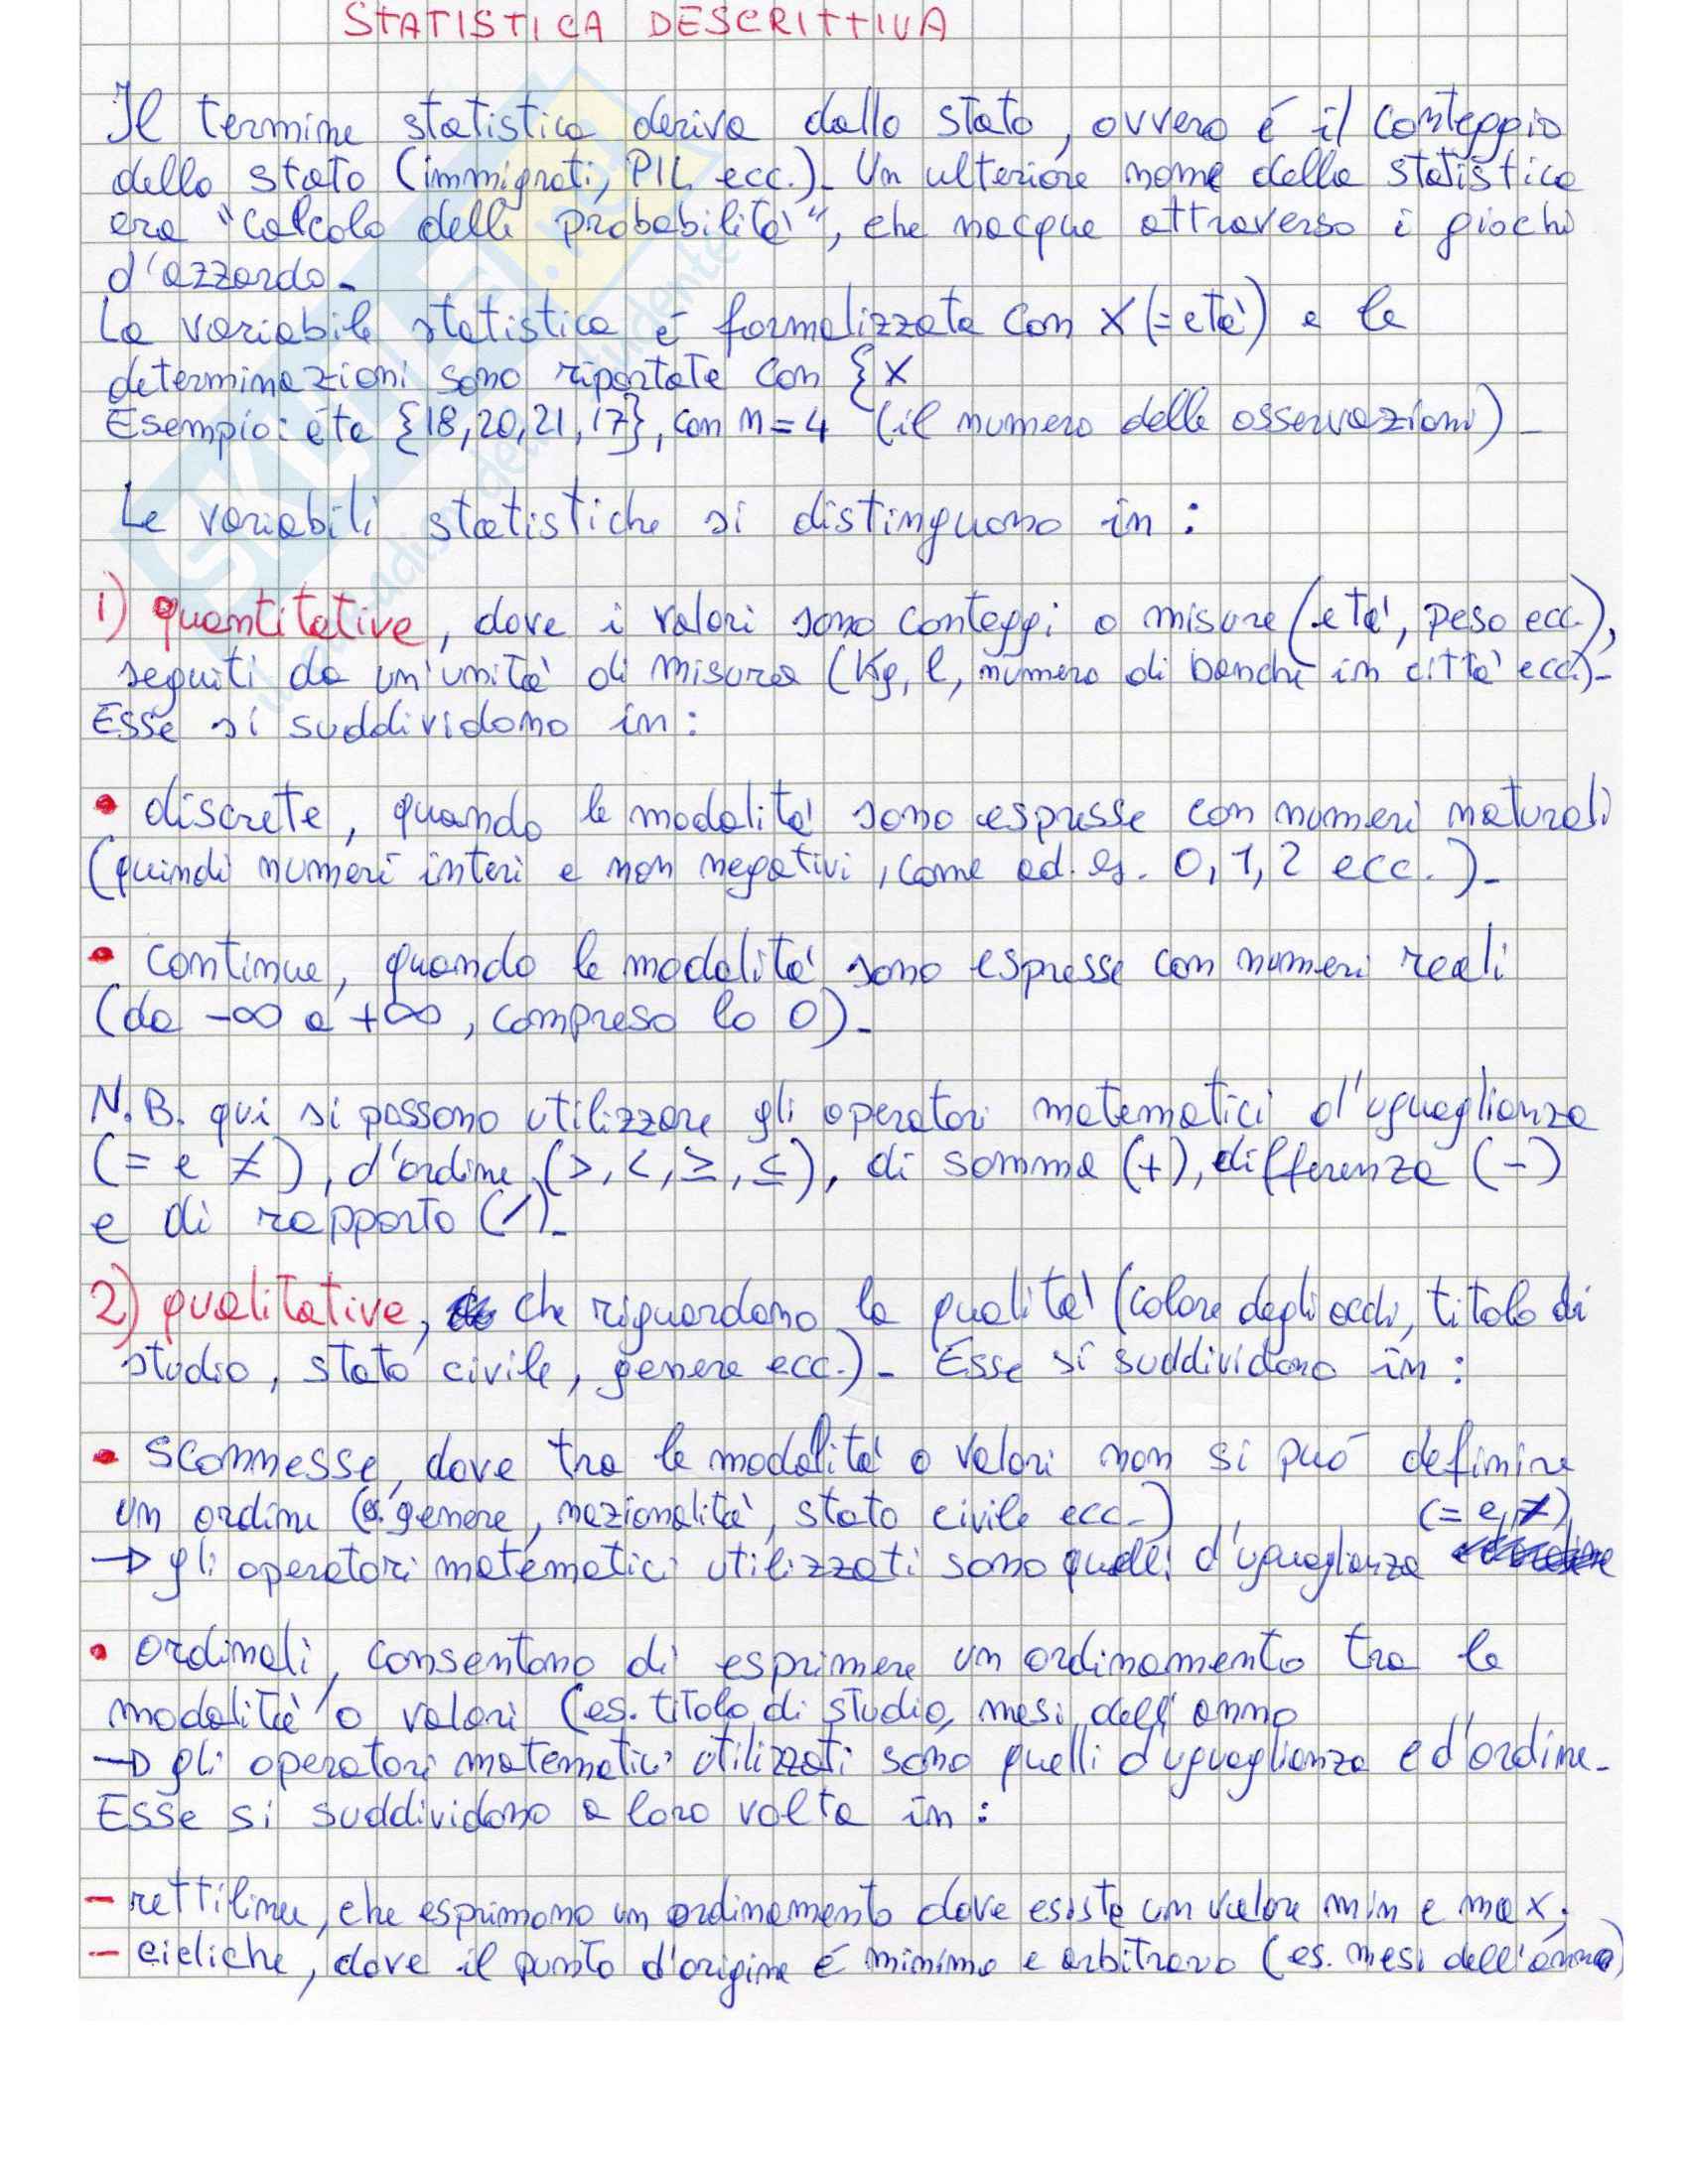 STATISTICA DESCRITTIVA
Il termine statistica deriva dallo stato, ovvero é il conteggio
dello stato (immigrati, PIL ecc.). Un ulteriore nome della statistica
era "calcolo delle probabilità", che nacque attraverso i giochi
d'azzardo.
La variabile statistica é formalizzata con X (= età) e le
determinazioni sono riportate con {X
Esempio: età {18, 20, 21, 17}, con n = 4 (il numero delle osservazioni).
Le variabili statistiche si distinguono in :
1) quantitative, dove i valori sono conteggi o misure (età, peso ecc.),
seguiti da un'unità di misura (Kg, l, numero di banche in città ecc.).
Esse si suddividono in :
• discrete, quando le modalità sono espresse con numeri naturali
(quindi numeri interi e non negativi, come ad. es. 0, 1, 2 ecc.).
• continue, quando le modalità sono espresse con numeri reali
(da -∞ a +∞, compreso lo 0).
N.B. qui si possono utilizzare gli operatori matematici d'uguaglianza
(= e ≠), d'ordine (>, <, ≥, ≤), di somma (+), differenza (-)
e di rapporto (/).
2) qualitative, che riguardano la qualità (colore degli occhi, titolo di
studio, stato civile, genere ecc.). Esse si suddividono in :
• sconnesse, dove tra le modalità o valori non si puó definire
un ordine (es. genere, nazionalità, stato civile ecc.)
→ gli operatori matematici utilizzati sono quelli d'uguaglianza (= e ≠)
• ordinali, consentono di esprimere un ordinamento tra le
modalità o valori (es. titolo di studio, mesi dell'anno
→ gli operatori matematici utilizzati sono quelli d'uguaglianza e d'ordine.
Esse si suddividono a loro volta in :
- rettilinee, che esprimono un ordinamento dove esiste un valore min e max;
- cicliche, dove il punto d'origine é minimo e arbitrario (es. mesi dell'anno)